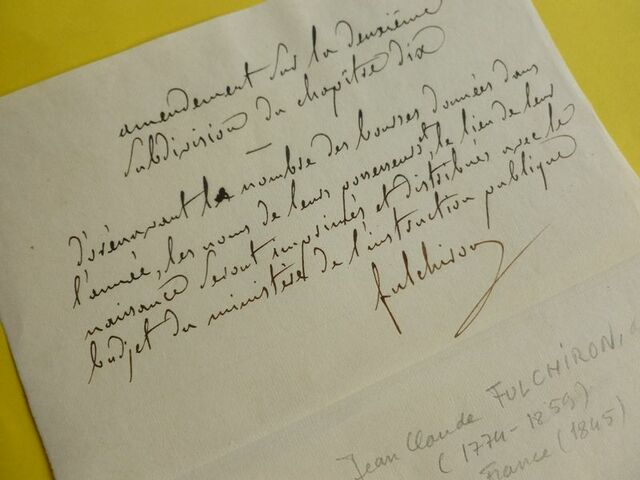 amendement sur la deuxième
subdivision du chapitre dix
d'orénavant le nombre des bourses données dans
l'année, les noms de leurs possesseurs, le lieu de leur
naissance seront imprimés et distribués avec le
budjet du ministère de l'instruction publique
fulchiron
Jean Claude FULCHIRON,
(1774-1859)
France (1845)